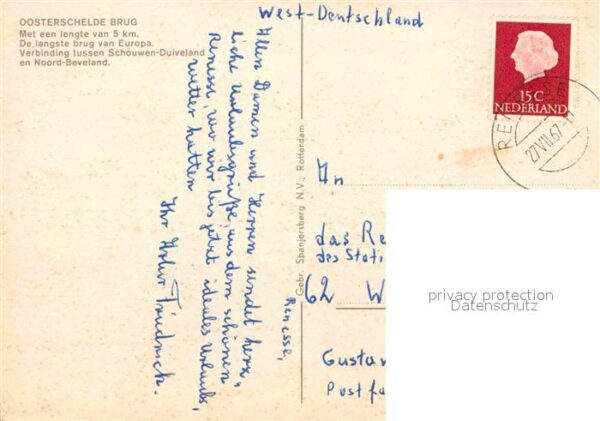 OOSTERSCHELDE BRUG
Met een lengte van 5 km.
De langste brug van Europa.
Verbinding tussen Schouwen-Duiveland
en Noord-Beveland.
West-Deutschland
15 C
NEDERLAND
27 VII 67
Gebr. Spanjersberg N.V., Rotterdam
Renesse,
Allen Damen und Herren sendet herz-
liche Urlaubsgrüße, aus dem schönen
Renesse, wo wir bis jetzt ideales Urlaubs-
wetter hatten
Ihr
An
das Re
des Stati
62 W
Gustav
Postfa
privacy protection
Datenschutz